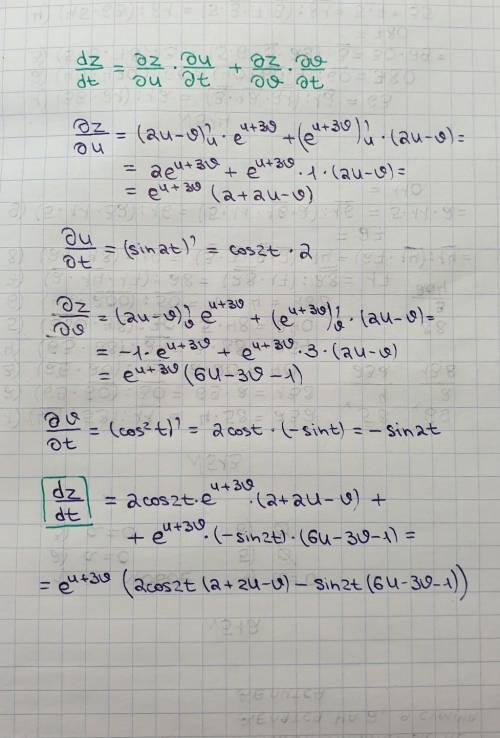 dz/dt = ∂z/∂u · ∂u/∂t + ∂z/∂ϑ · ∂ϑ/∂t
∂z/∂u = (2u-ϑ)'ᵤ · e^(u+3ϑ) + (e^(u+3ϑ))'ᵤ · (2u-ϑ) =
= 2e^(u+3ϑ) + e^(u+3ϑ) · 1 · (2u-ϑ) =
= e^(u+3ϑ) (2+2u-ϑ)
∂u/∂t = (sin2t)' = cos2t · 2
∂z/∂ϑ = (2u-ϑ)'_ϑ e^(u+3ϑ) + (e^(u+3ϑ))'_ϑ · (2u-ϑ) =
= -1 · e^(u+3ϑ) + e^(u+3ϑ) · 3 · (2u-ϑ)
= e^(u+3ϑ) (6u-3ϑ-1)
∂ϑ/∂t = (cos²t)' = 2cost · (-sint) = -sin2t
dz/dt = 2cos2t · e^(u+3ϑ) · (2+2u-ϑ) +
+ e^(u+3ϑ) · (-sin2t) · (6u-3ϑ-1) =
= e^(u+3ϑ) (2cos2t (2+2u-ϑ) - sin2t (6u-3ϑ-1))